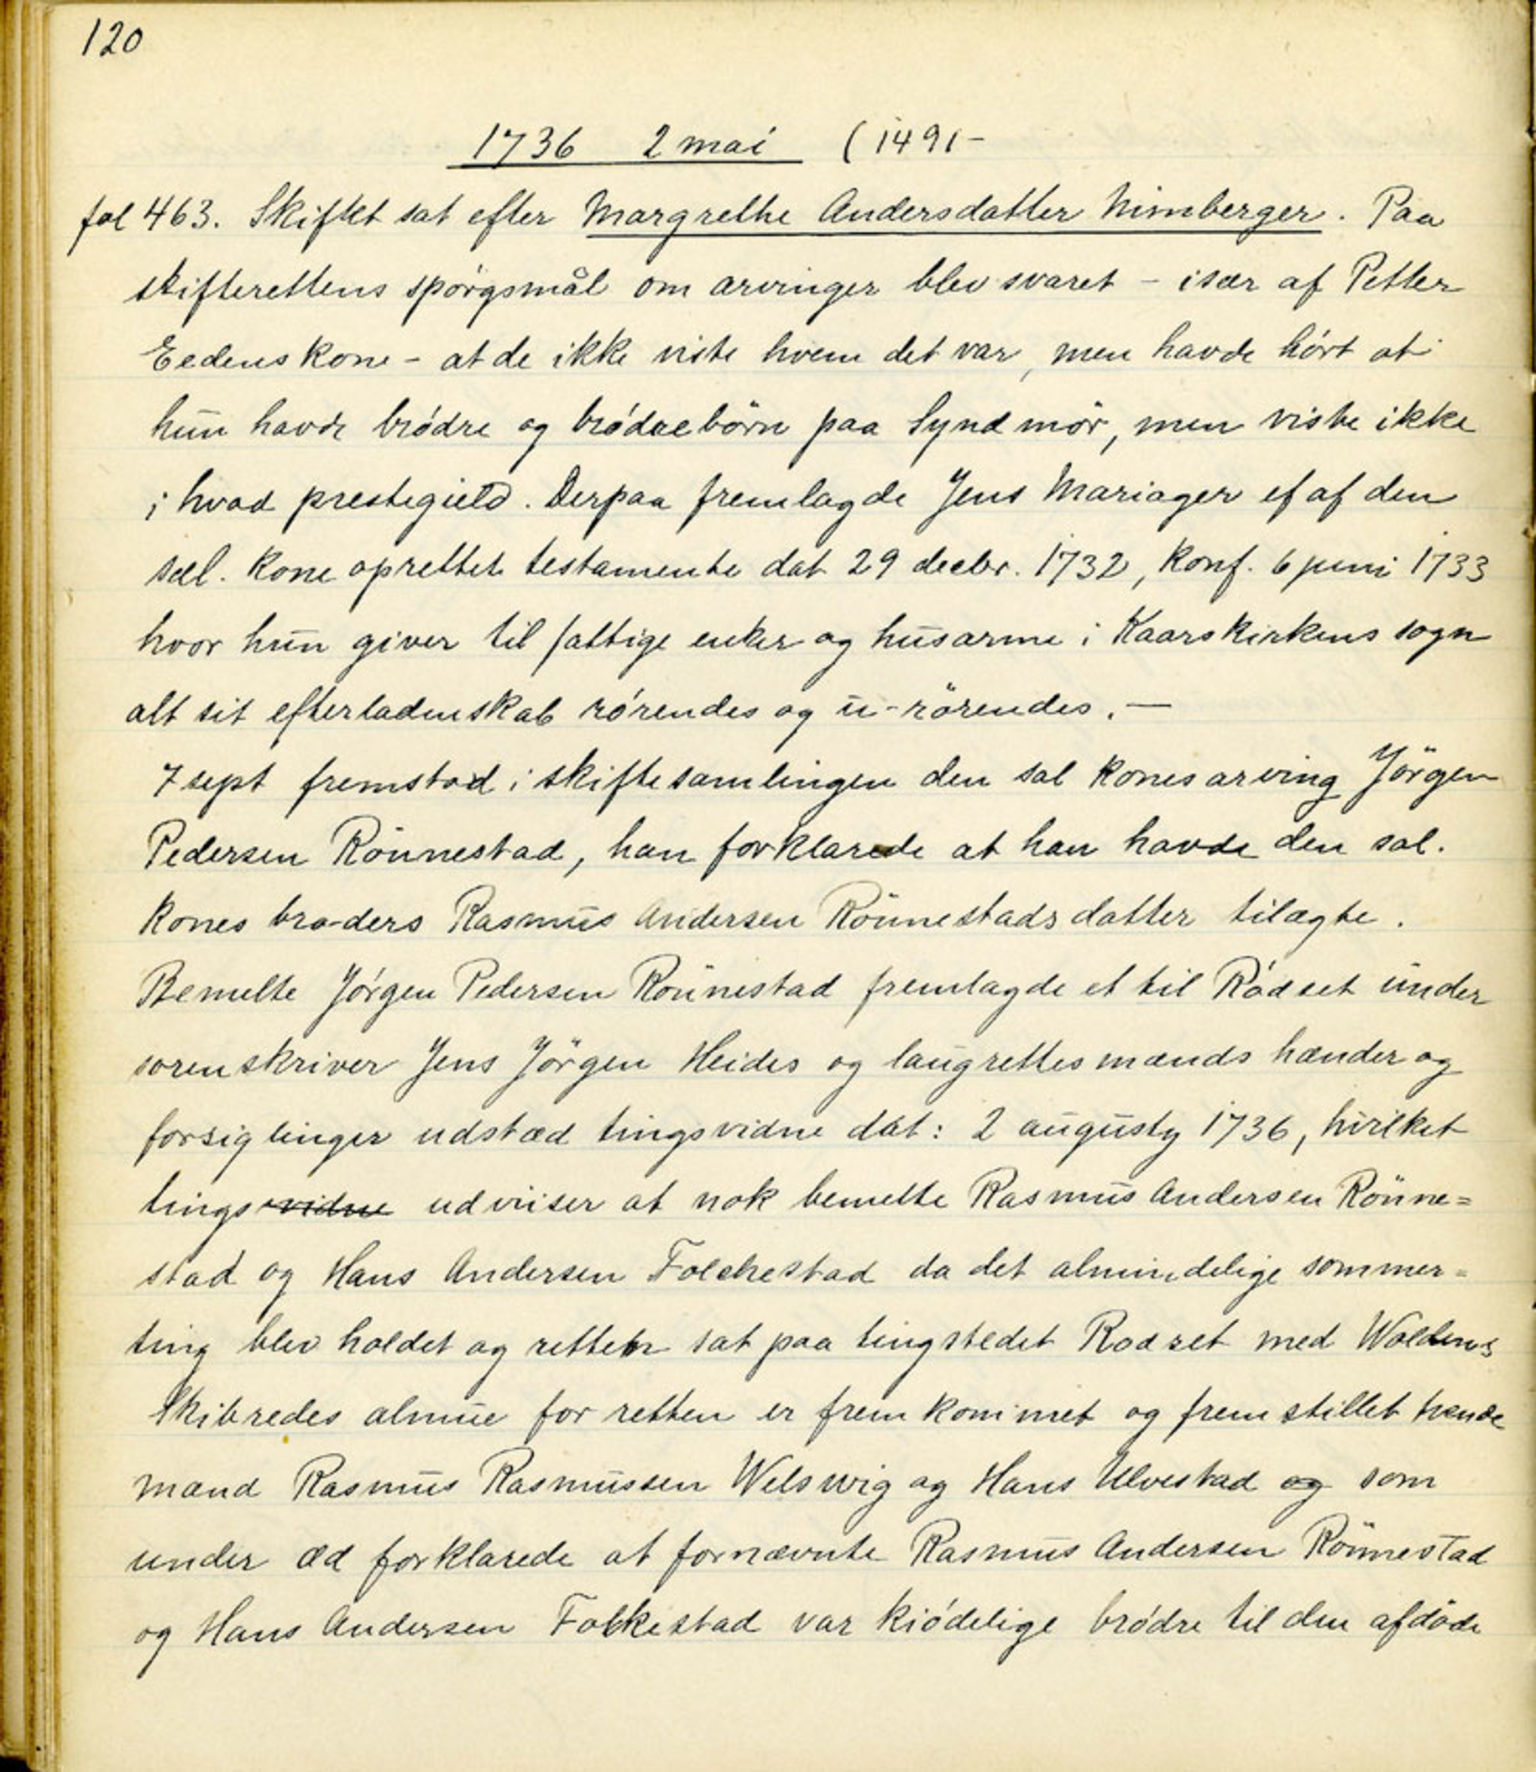 120
1736 2 mai (1491-
fol 463. Skiftet sat efter Margrethe Andersdatter Nimberger. Paa
skifterettens spörgsmål om arvinger blev svaret - især af Petter
Eedens kone - at de ikke viste hvem det var, men havde hört at
hun havde brödre og brödrebörn paa Syndmör, men viste ikke
i hvad prestegield. Derpaa fremlagde Jens Mariager et af den
sæl. kone oprettet testamente dat 29 decbr. 1732, konf. 6 juni 1733
hvor hun giver til fattige enker og husarme i Kaarskirkens sogn
alt sit efterladenskab rörendes og u-rörendes. —
7 sept fremstod i skiftesamlingen den sal kones arving Jörgen
Pedersen Rönnestad, han forklarede at han havde den sal.
kones bro-ders Rasmus Andersen Rönnestads datter tilægte.
Bemelte Jörgen Pedersen Rönnestad fremlagde et til Rödset under
sorenskriver Jens Jörgen Heides og laugrettesmænds hænder og
forsiglinger udstæd tingsvidne dat: 2 augusty 1736, hvilket
tingsvidne udviiser at nok bemelte Rasmus Andersen Rönne=
stad og Hans Andersen Folchestad da det almindelige sommer=
ting blev holdet og retten sat paa tingstedet Rodset med Woldens
Skibredes almue for retten er fremkommet og fremstillet tvende
mænd Rasmus Rasmussen Welswig og Hans Ulvestad og som
under æd forklarede at fornævnte Rasmus Andersen Rönnestad
og Hans Andersen Folkestad var kiödelige brödre til den afdöde